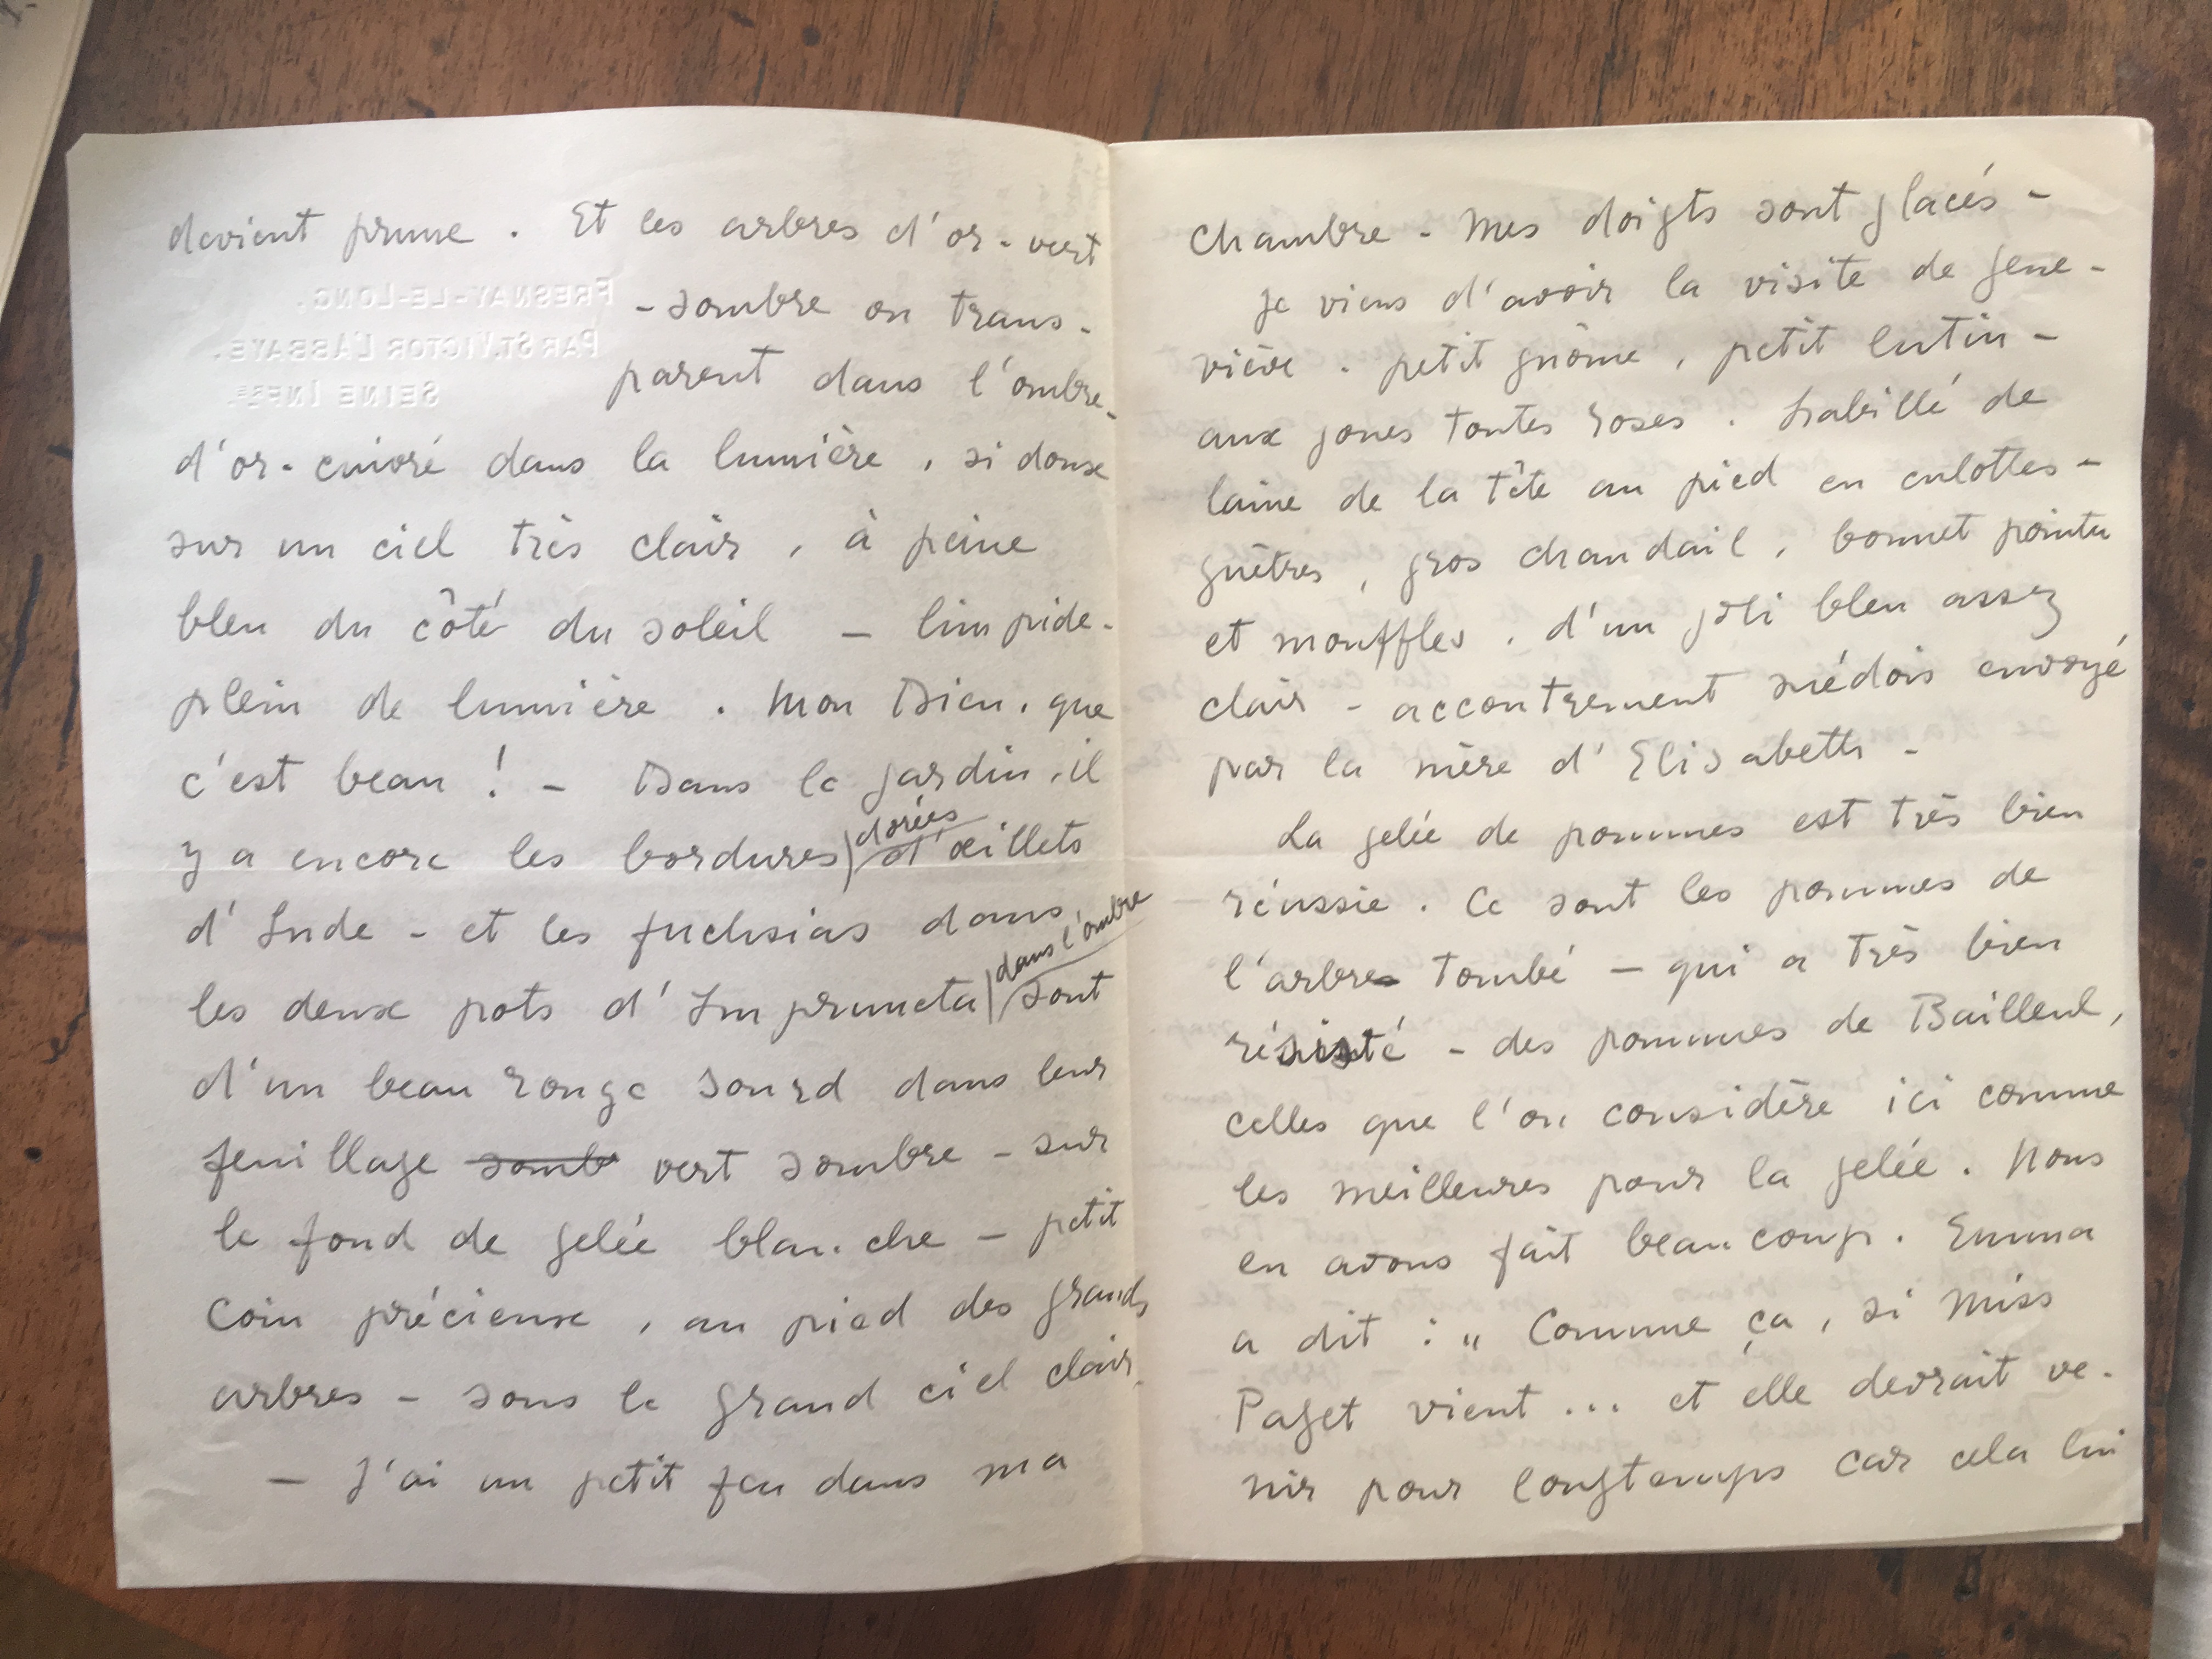 devient prune . Et les arbres d'or-vert
FRESNAY-LE-LONG.
PAR ST. VICTOR L'ABBAYE.
SEINE INFRE.
- sombre ou trans-
parent dans l'ombre -
d'or-cuivré dans la lumière , si doux
sur un ciel très clair , à peine
bleu du côté du soleil – limpide -
plein de lumière . Mon Dieu , que
c'est beau ! – Dans le jardin , il
dorées
y a encore les bordures d'œillets
d'Inde - et les fuchsias dans
dans l'ombre
les deux pots d'Impruneta sont
d'un beau rouge sourd dans leur
feuillage somb vert sombre - sur
le fond de gelée blanche – petit
coin précieux , au pied des grands
arbres – sous le grand ciel clair .
– J'ai un petit feu dans ma
chambre - Mes doigts sont glacés -
Je viens d'avoir la visite de Gene-
viève . petit gnôme , petit lutin -
aux joues toutes roses . habillé de
laine de la tête au pied en culottes -
guêtres , gros chandail , bonnet pointu
et mouffles . d'un joli bleu assez
clair - accoutrement suédois envoyé
par la mère d'Elisabeth -
La gelée de pommes est très bien
réussie . Ce sont les pommes de
l'arbre tombé – qui a très bien
résisté - des pommes de Bailleul ,
celles que l'on considère ici comme
les meilleures pour la gelée . Nous
en avons fait beaucoup . Emma
a dit : " Comme ça , si Miss
Paget vient ... et elle devrait ve-
nir pour longtemps car cela lui